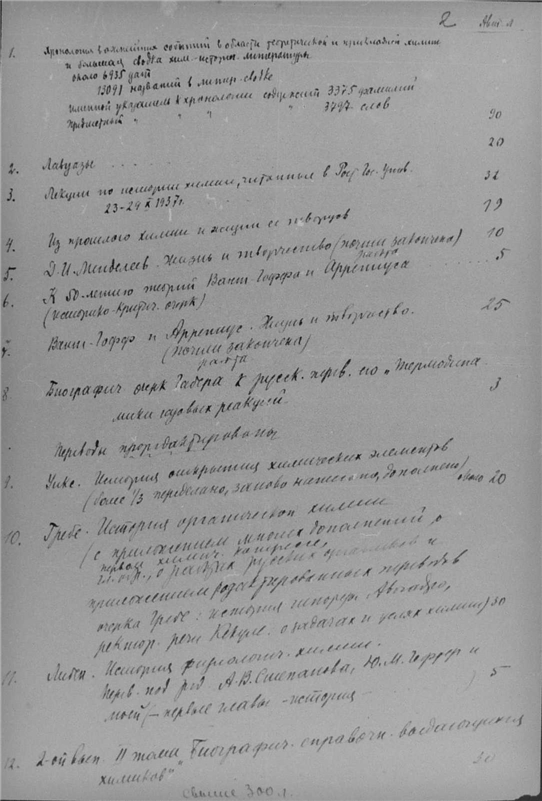 2 Авт. л.
1. Хронология важнейших событий в области теоретической и прикладной химии
и большая сводка хим.-истор. литературы
около 6935 дат
13091 названий в литер. сводке
именной указатель к хронологии содержит 3375 фамилий
предметный " " " " 3797 слов
90
2. Лавуазье . . . . . 20
3. Лекции по истории химии, читанные в Рост. Гос. Унив.
23-29 X 1937 г. 32
4. Из прошлого химии и жизни ее творцов 19
5. Д. И. Менделеев. Жизнь и творчество (почти закончена) 10
работа
6. К 50-летию теорий Вант-Гоффа и Аррениуса . . . . . 5
(историко-критич. очерк)
7. Вант-Гофф и Аррениус. Жизнь и творчество. 25
(почти закончена)
работа
8. Биографич. очерк Габера к русск. перев. его „Термодина
мики газовых реакций 3
Переводы проредактированы
9. Уикс. История открытия химических элементов
(более 1/3 переделано, заново написано, дополнено) около 20
10. Гребе. История органической химии
(с приложением многих дополнений, о
первом химич. конгрессе,
о русских органиках и
приложением редактированных переводов
очерка Гребе: история гипотезы Авогадро,
ректор. речи Кекуле о задачах и целях химии) 30
11. Либен. История физиологич. химии.
Перев. под ред. А. В. Степанова, Ю. М. Гефтер и
моей (— первые главы - история — ) 5
12. 2-ой вып. II тома „Биографич. справочн. выдающихся
химиков" 30
свыше 300 л.